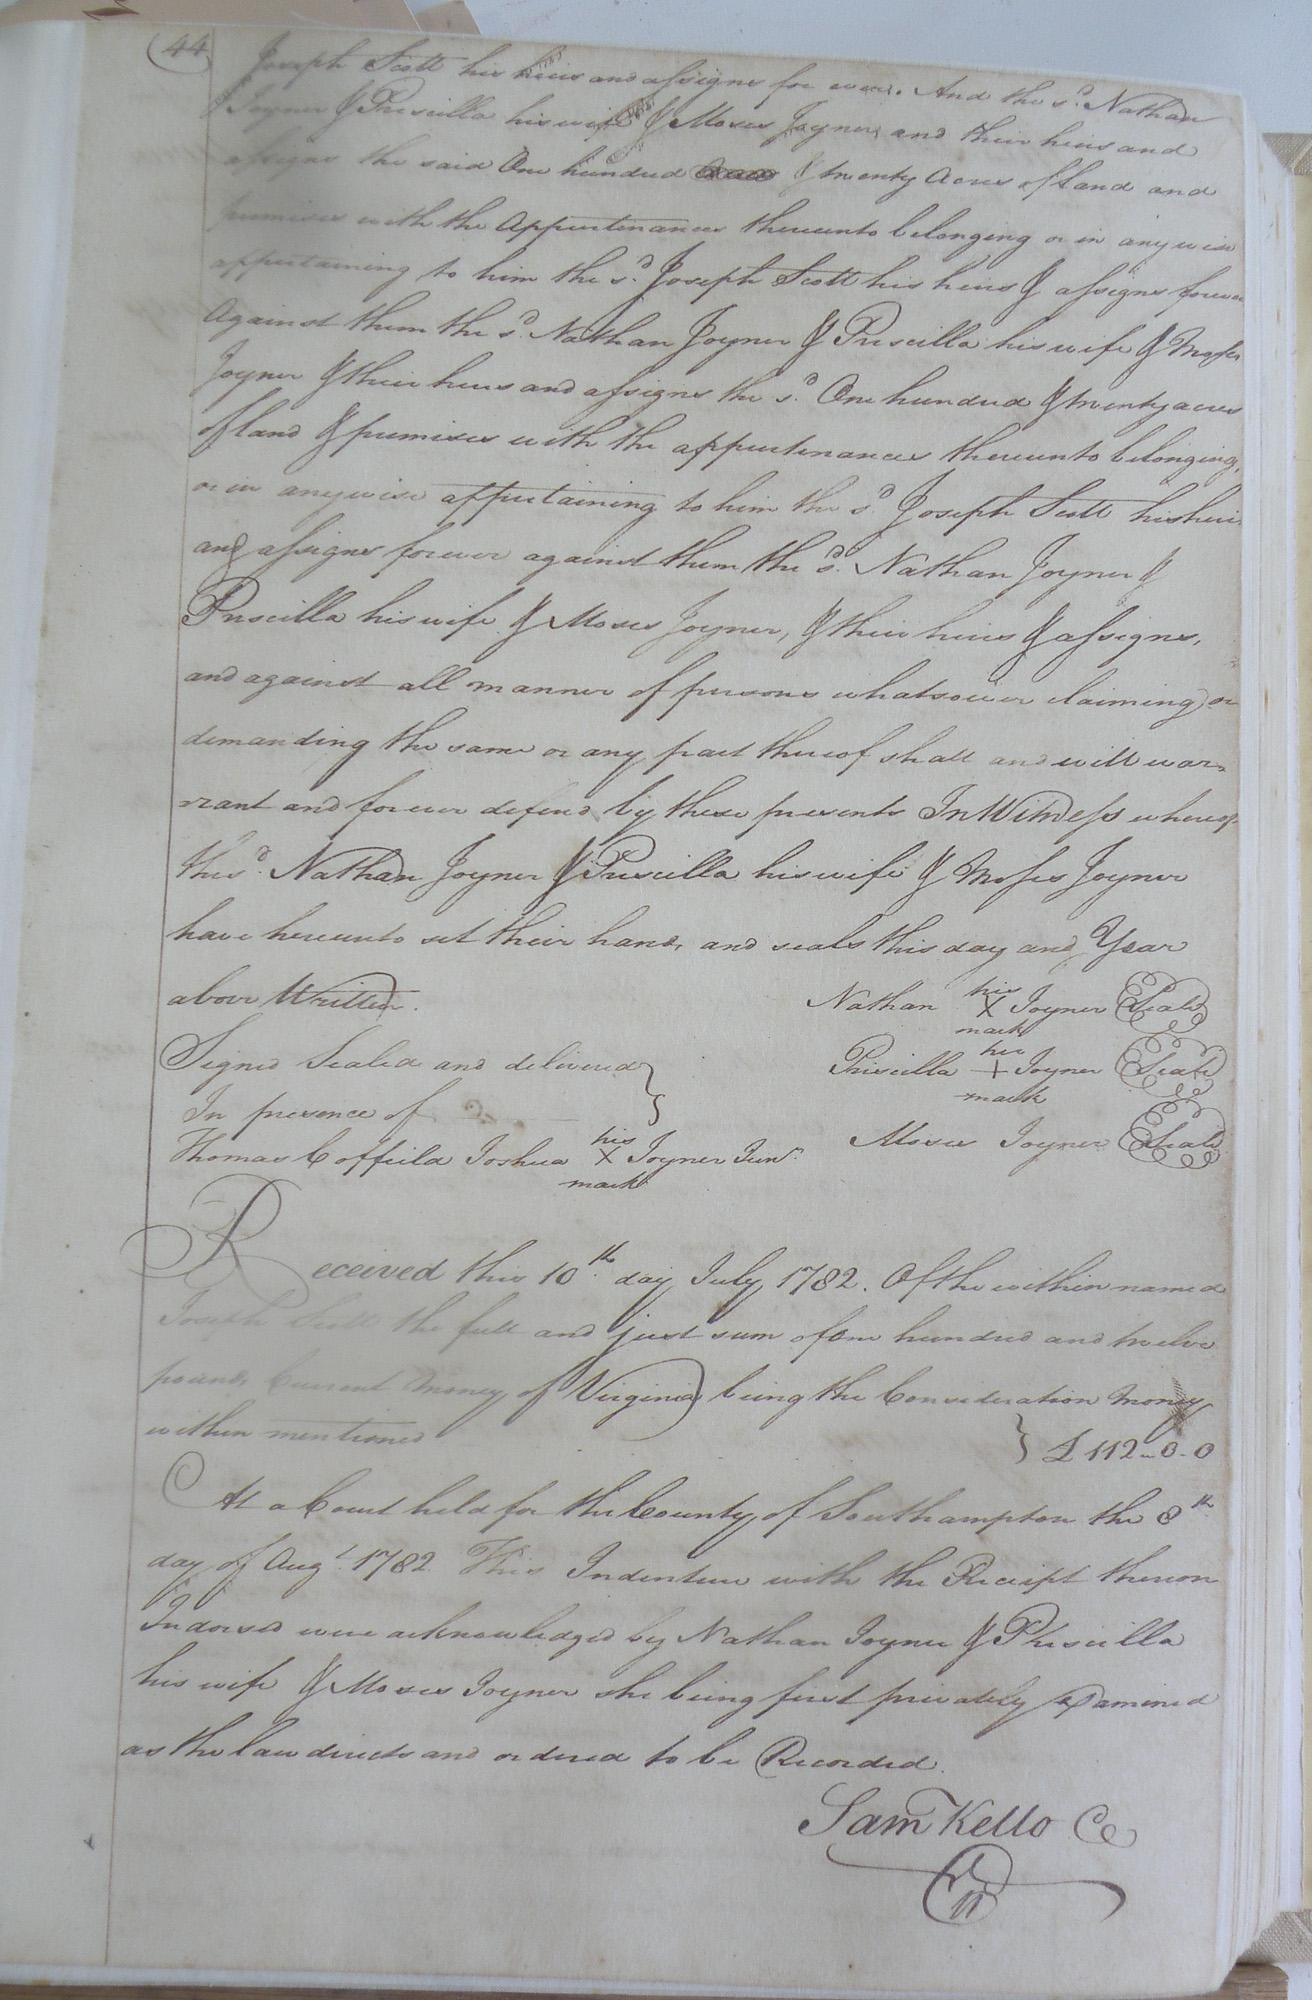 44
Joseph Scott his heirs and assigns for ever. And the sd. Nathan
Joyner & Priscilla his wife & Moses Joyner, and their heirs and
assigns the said One hundred & twenty Acres of Land and
premises with the Appurtenances thereunto belonging or in any wise
appertaining to him the sd. Joseph Scott his heirs & assigns forever
Against them the sd. Nathan Joyner & Priscilla his wife & Moses
Joyner & their heirs and assigns the sd. One hundred & twenty acres
of land & premises with the appurtenances thereunto belonging,
or in anywise appertaining to him the sd. Joseph Scott his heirs
and assigns forever against them the sd. Nathan Joyner &
Priscilla his wife & Moses Joyner, & their heirs & assigns,
and against all manner of persons whatsoever claiming or
demanding the same or any part thereof shall and will war-
rant and forever defend by these presents In Witness whereof
the sd. Nathan Joyner & Priscilla his wife & Moses Joyner
have hereunto set their hands and seals this day and Year
above Written.
Nathan his X mark Joyner Seal
Signed Sealed and delivered }
Priscilla her + mark Joyner Seal
In presence of
Moses Joyner Seal
Thomas Coffield Joshua his X mark Joyner Junr.
Received this 10th. day July 1782. Of the within named
Joseph Scott the full and just sum of One hundred and twelve
pounds Current Money of Virginia being the Consideration Money
within mentioned } £ 112-0-0
At a Court held for the County of Southampton the 8th
day of Augt. 1782. This Indenture with the Receipt thereon
Indorsed were acknowledged by Nathan Joyner & Priscilla
his wife & Moses Joyner she being first privately Examined
as the law directs and ordered to be Recorded.
Sam Kello CC